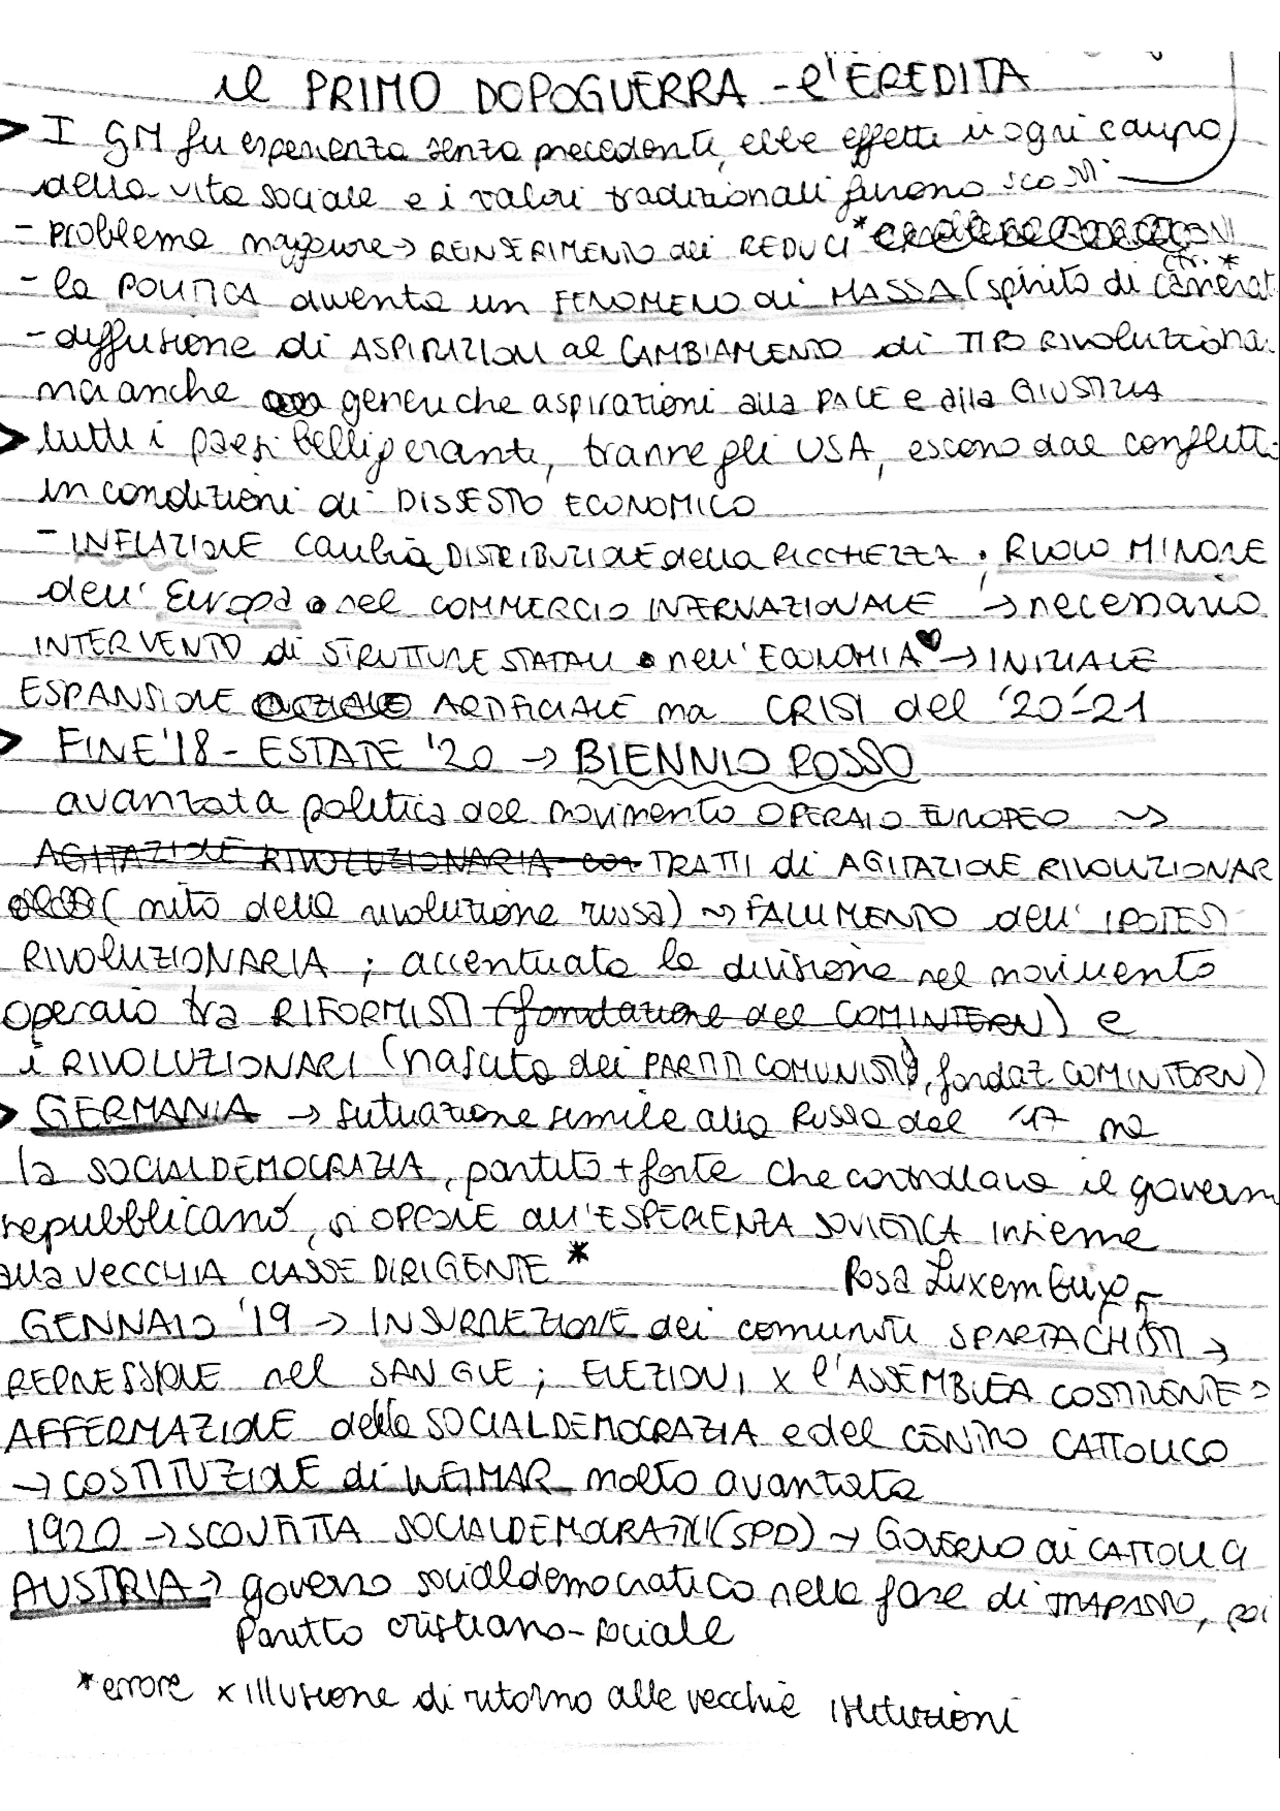 il PRIMO DOPOGUERRA - l'EREDITA
> I GM fu esperienza senza precedenti, ebbe effetti in ogni campo
della vita sociale e i valori tradizionali furono scossi
- problema maggiore → REINSERIMENTO dei REDUCI *
- la POLITICA diventa un FENOMENO di MASSA (spirito di camerat
- diffusione di ASPIRAZIONI al CAMBIAMENTO di TIPO RIVOLUZIONA
ma anche generiche aspirazioni alla PACE e alla GIUSTIZIA
> tutti i paesi belligeranti, tranne gli USA, escono dal conflitto
in condizioni di DISSESTO ECONOMICO
- INFLAZIONE cambia DISTRIBUZIONE della RICCHEZZA ; RUOLO MINORE
dell' Europa nel COMMERCIO INTERNAZIONALE → necessario
INTERVENTO di STRUTTURE STATALI nell'ECONOMIA ♥ → INIZIALE
ESPANSIONE ARTIFICIALE ma CRISI del '20-21
> FINE '18 - ESTATE '20 → BIENNIO ROSSO
avanzata politica del movimento OPERAIO EUROPEO ~>
AGITAZIONE RIVOLUZIONARIA con TRATTI di AGITAZIONE RIVOLUZIONAR
(mito della rivoluzione russa) ~> FALLIMENTO dell' IPOTESI
RIVOLUZIONARIA ; accentuata la divisione nel movimento
operaio tra RIFORMISTI (fondazione del COMINTERN) e
i RIVOLUZIONARI (nascita dei PARTITI COMUNISTI, fondaz COMINTERN)
> GERMANIA → situazione simile alla Russia del '17 ma
la SOCIALDEMOCRAZIA, partito + forte che controllava il govern
repubblicano, si OPPONE all'ESPERIENZA SOVIETICA insieme
alla VECCHIA CLASSE DIRIGENTE *
Rosa Luxemburg
GENNAIO '19 → INSURREZIONE dei comunisti SPARTACHISTI →
REPRESSIONE nel SANGUE ; ELEZIONI x l'ASSEMBLEA COSTITUENTE →
AFFERMAZIONE della SOCIALDEMOCRAZIA e del CENTRO CATTOLICO
→ COSTITUZIONE di WEIMAR molto avanzata
1920 → SCONFITTA SOCIALDEMOCRATICI (SPD) → GOVERNO di CATTOLICI
AUSTRIA → governo socialdemocratico nella fase di TRAPASSO, poi
Partito cristiano-sociale
* errore x illusione di ritorno alle vecchie istituzioni